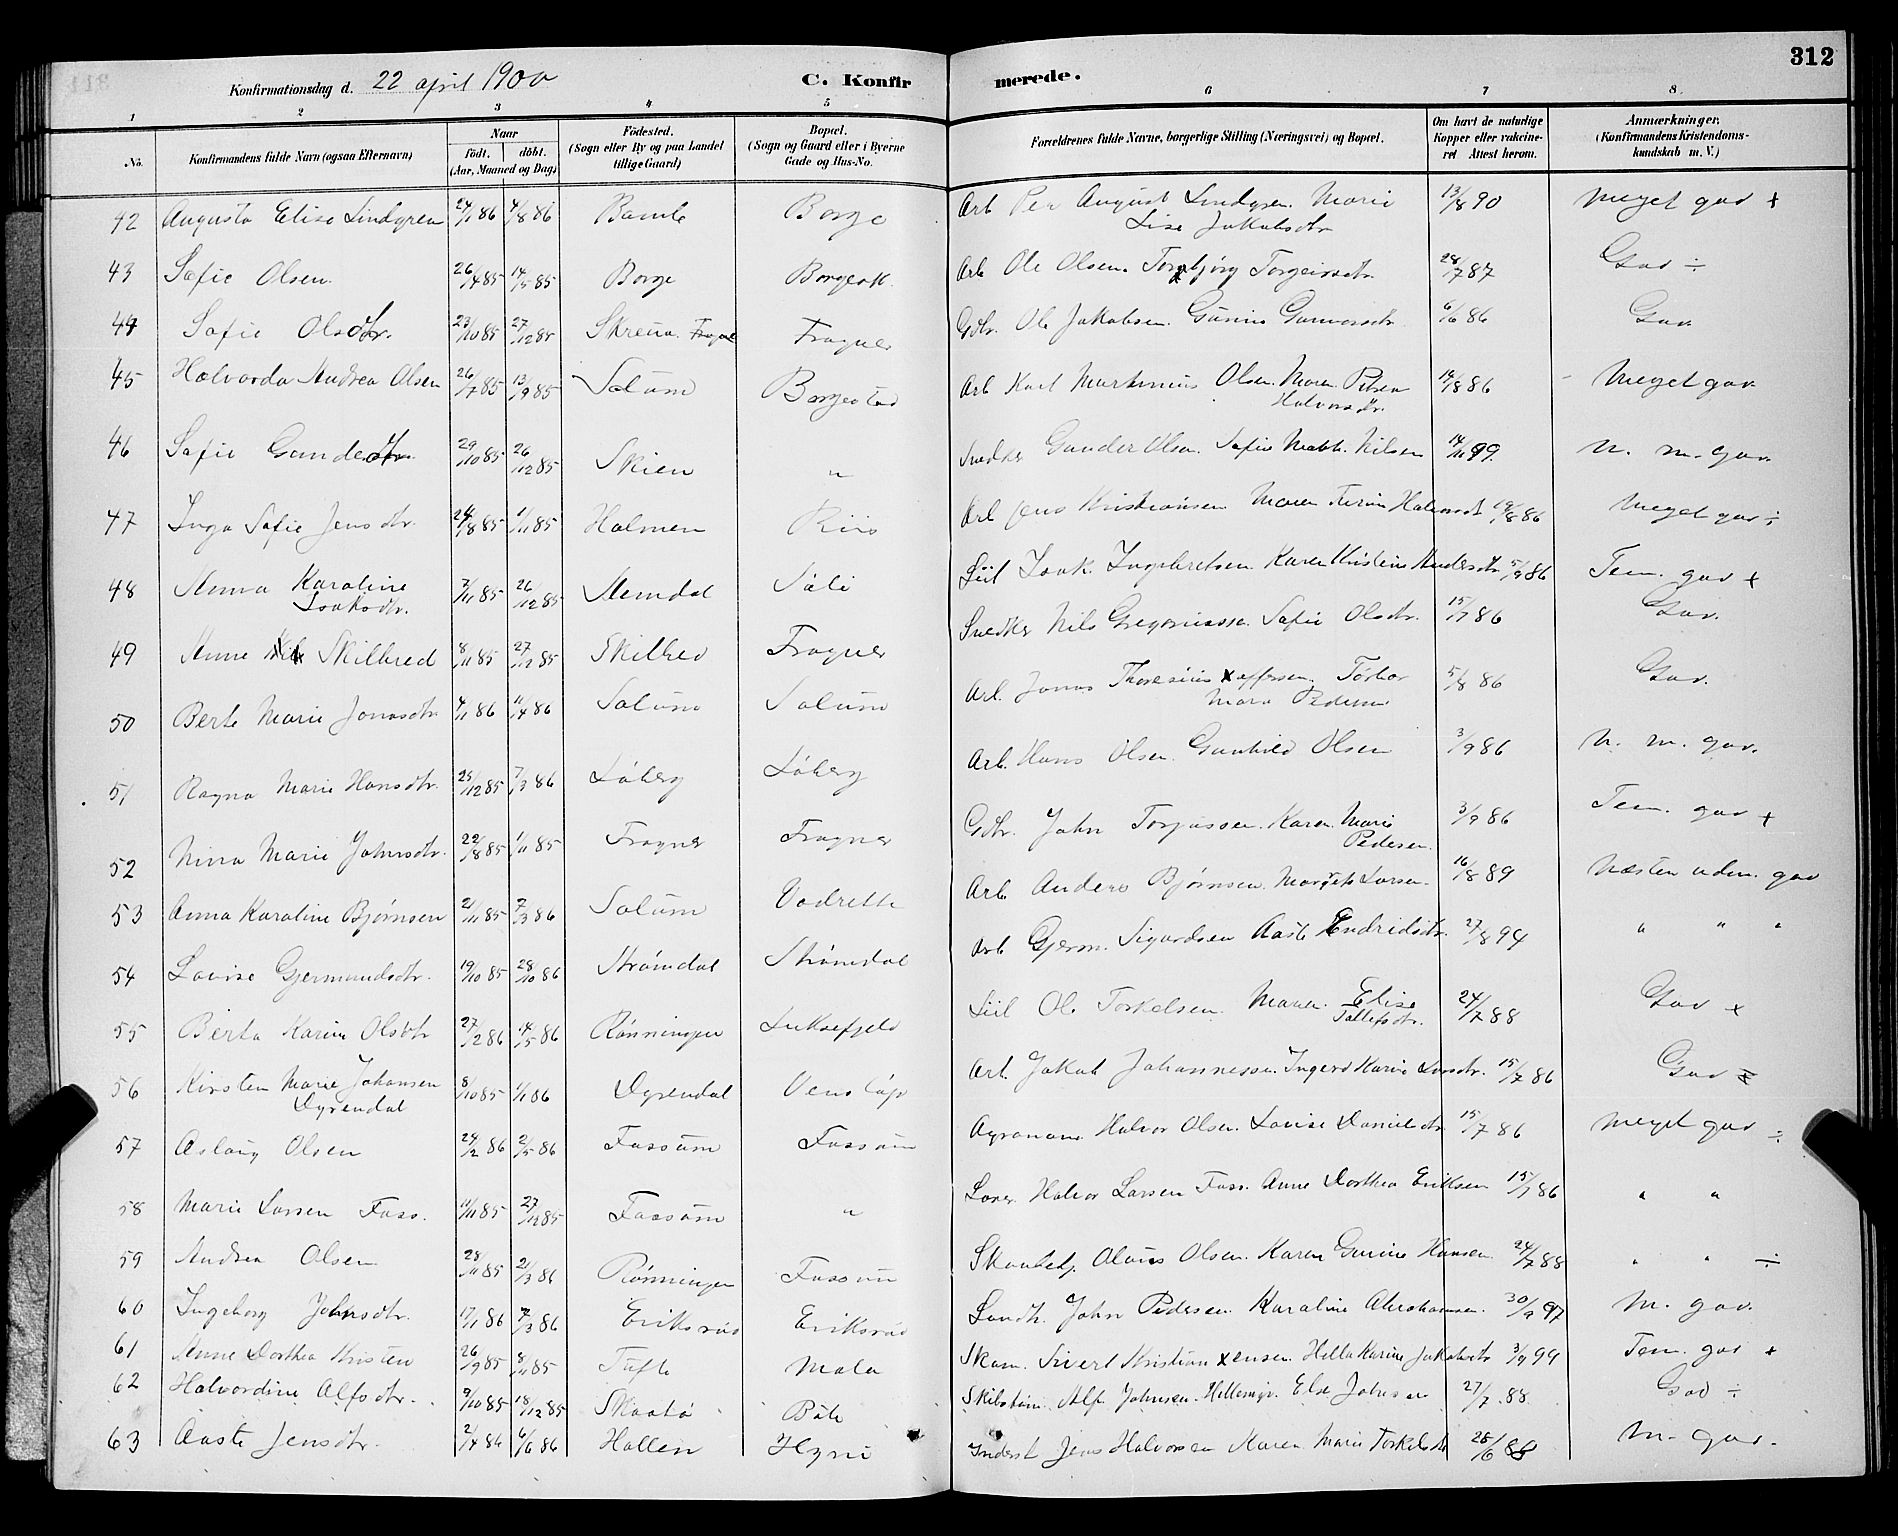 312
Konfirmationsdag d. 22 april 1900 C. Konfirmerede.
1 2 3 4 5 6 7 8.
No. Konfirmandens fulde Navn (ogsaa Efternavn) Naar födt. döbt. (Aar, Maaned og Dag) Födested. (Sogn eller By og paa Landet tillige Gaard) Bopæl. (Sogn og Gaard eller i Byerne Gade og Hus-No. Forældrenes fulde Navne, borgerlige Stilling (Næringsvei) og Bopæl. Om havt de naturlige Kopper eller vakcineret Attest herom. Anmærkninger. (Konfirmandens Kristendomskundskab m. V.)
42 Augusta Elise Lindgren 24/1 86 4/8 86 Bamle Borge Arb Per August Lindgren. Marie Lise Jakobsdtr 13/8 90 Meget god +
43 Sofie Olsen. 26/4 85 14/5 85 Borge Borgestk. Arb Ole Olsen. Torbjörg Torgeirsdtr. 28/7 87 God ÷
44 Sofie Olsdtr. 23/10 85 27/12 85 Skrena. Frogner Frogner Gdbr. Ole Jakobsen. Gunine Gunvorsdtr. 6/6 86 God.
45 Halvorda Andrea Olsen 26/7 85 13/9 85 Solum Borgestad Arb Karl Martinius Olsen. Maren Petrea Halvorsdtr. 14/8 86 Meget god.
46 Sofie Gunderdtr. 29/10 85 26/12 85 Skien " Snedker Gunder Olsen. Sofie Math. Nilsen 14/11 99. N. m. god.
47 Inga Sofie Jensdtr. 24/8 85 1/11 85 Holmen Riis Arb Jens Kristiansen Maren Turine Halvorsdt 19/8 86 Meget god ÷
48 Anna Karoline Isaksdtr. 7/11 85 26/12 85 Stemdal Söli Isak Ingebretsen Karen Kristine Andersdtr. 5/9 86 Tem. god +
49 Anne Skilbred 8/11 85 27/12 85 Skilbred Frogner Snedker Nils Gregoriussen. Sofie Olsdtr. 15/7 86 God.
50 Berte Marie Jonasdtr 4/1 86 11/4 86 Solum Solum Arb. Jonas Thoresius Mara Pedersen 5/8 86 God.
51 Ragna Marie Hansdtr. 25/12 85 7/3 86 Löberg Löberg Arb. Hans Olsen Gunhild Olsen 3/9 86 N. m. god.
52 Nina Marie Johnsdtr. 22/8 85 1/11 85 Frogner Frogner Gdbr. John Torjussen. Karen Marie Pedersen. 3/9 86 Tem. god +
53 Anna Karoline Björnsen 2/11 85 7/3 86 Solum Vadrette Arb Anders Björnsen. Margete Larsen. 16/8 89 Næsten uden. god
54 Lovise Gjermundsdtr. 19/10 85 28/10 86 Strömdal Strömdal Arb Gjerm. Sigurdsen Aaste Endridsdtr. 27/8 94 " " "
55 Berta Karine Olsdtr 27/2 86 14/5 86 Rönningen Luksefjeld Ole Torkelsen. Maren Elise Tollefsdtr. 24/7 88 God +
56 Kirsten Marie Johansen Dyrendal 8/10 85 1/1 86 Dyrendal Venstöp Arb. Jakob Johannessen. Ingerd Karine Larsdtr. 15/7 86 God
57 Aslaug Olsen 24/2 86 2/5 86 Fossum Fossum Agronom Halvor Olsen. Lovise Danielsdtr 15/7 86 Meget god ÷
58 Marie Larsen Foss. 11/11 85 27/12 85 Fossum " Halvor Larsen Foss. Anne Dorthea Eriksen 15/7 86 " "
59 Andrea Olsen 28/11 85 21/3 86 Rönningen Fossum Olaus Olsen. Karen Gurine Hansen. 24/7 88 " " ÷
60 Ingeborg Johnsdtr. 17/1 86 7/3 86 Eriksröd Eriksröd Landh. John Pedersen. Karoline Abrahamsen. 30/9 97 M. god.
61 Anne Dorthea Kristen 26/9 85 8/11 85 Tufte Mæla Skom. Sivert Kristian Helle Karine Jakobsdtr 3/9 99 Tem. god +
62 Halvordine Alfsdtr. 9/10 85 18/12 85 Skaatö Böle Alf Johnsen. Else Johnsen 27/7. 88. God ÷
63 Aaste Jensdtr. 2/4 86 6/6 86 Hollen Hyni Inderst Jens Halvorsen Maren Marie Torkelsdtr 28/6 88 M. god.